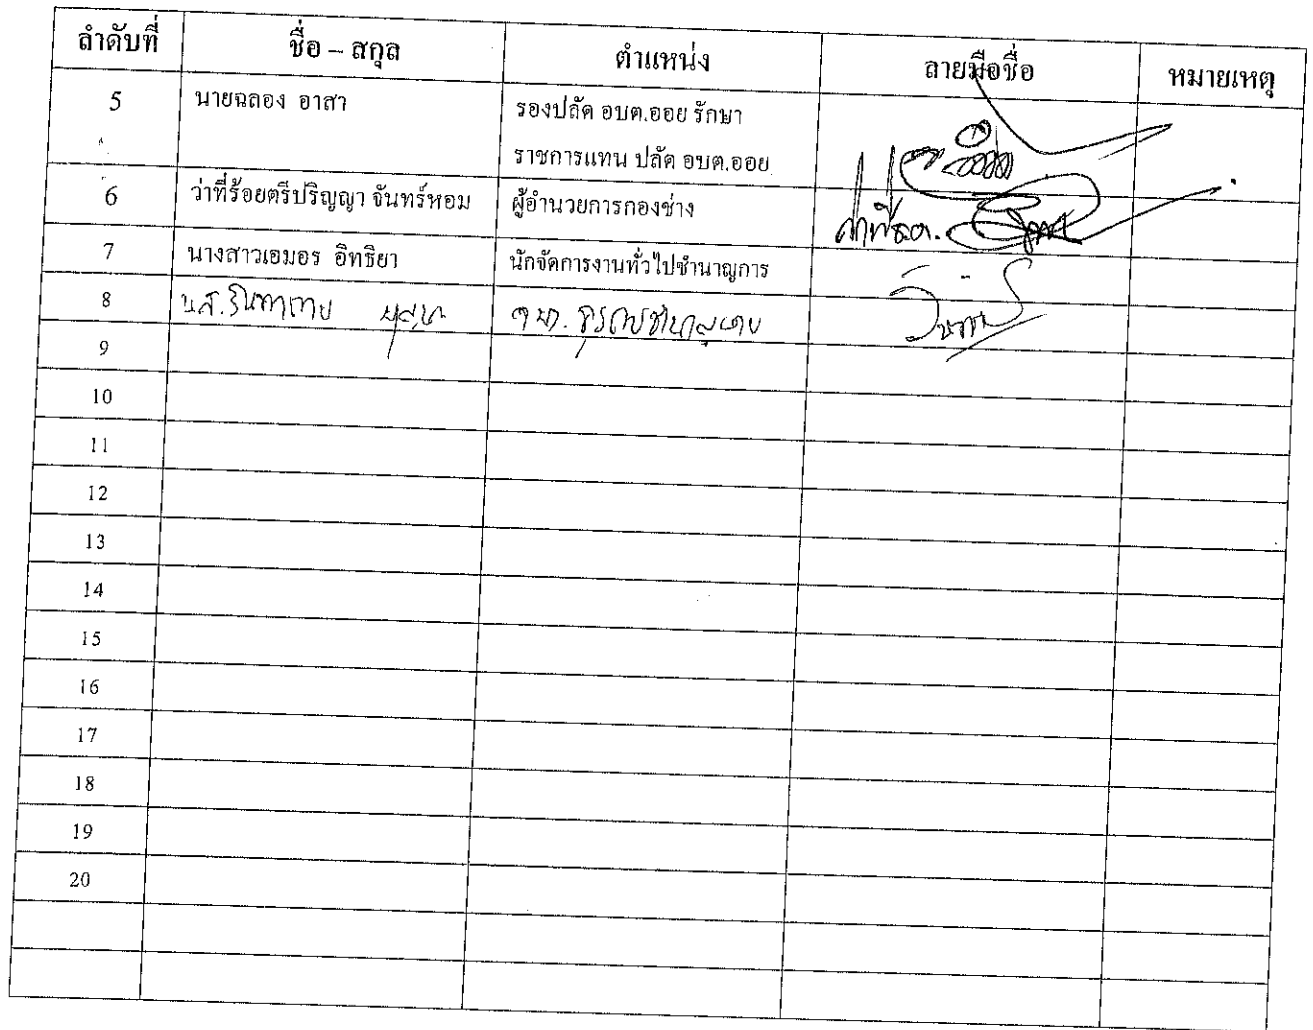 ลำดับที่ ชื่อ – สกุล ตำแหน่ง ลายมือชื่อ หมายเหตุ
5 นายฉลอง อาสา รองปลัด อบต.ออย รักษา
ราชการแทน ปลัด อบต.ออย
6 ว่าที่ร้อยตรีปริญญา จันทร์หอม ผู้อำนวยการกองช่าง ว่าที่ ร.ต.
7 นางสาวเอมอร อิทธิยา นักจัดการงานทั่วไปชำนาญการ
8 น.ส. จพง. ธุรการชำนาญงาน
9
10
11
12
13
14
15
16
17
18
19
20